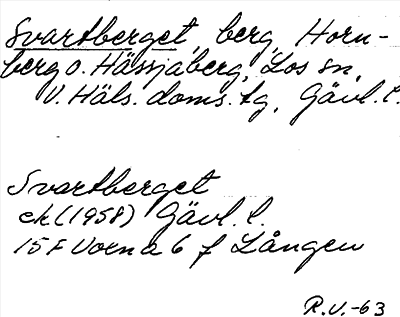 Svartberget, berg, Horn-
berg o. Hässjaberg, Los sn,
V. Häls. doms. tg, Gävl. l.
Svartberget
ek (1958) Gävl. l.
15F Voxna 6 f Lången
R.V.-63